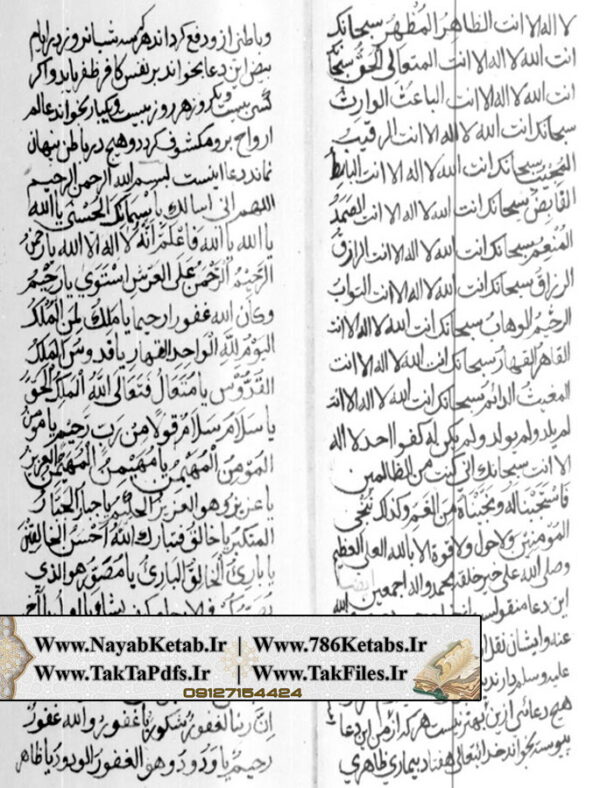 لا اله الا انت الظاهر المطهر سبحانك
انت الله لا اله الا انت المتعالی الحق سبحا
انت الله لا اله الا انت الباعث الوارث
سبحانک انت الله لا اله الا انت الرقیب
المجیب سبحانک انت الله لا اله الا انت الباسط
القابض سبحانک انت الله لا اله الا انت الصمد
المنعم سبحانک انت الله لا اله الا انت الرازق
الرزاق سبحانک انت الله لا اله الا انت التواب
الرحیم الوهاب سبحانک انت الله لا اله الا انت
القاهر القهار سبحانک انت الله لا اله الا انت
المغیث الدائم سبحانک انت الله لا اله الا انت
لم یلد ولم یولد ولم یکن له کفوا احد لا اله
الا انت سبحانک انی کنت من الظالمین
فاستجبنا له ونجیناه من الغم وکذلک ننجی
المؤمنین ولا حول ولا قوة الا بالله العلی العظیم
وصلی الله علی خیر خلقه محمد واله اجمعین ایضا
این دعا منقول الله
عنه وایشان نقل
علیه وسلم دارند
هیچ دعائی ازین بهتر نیست هر که از من این دعا
پیوسته بخواند خدایتعالی هفتاد بیماری ظاهری
وباطنی ازو دفع کرداند هرکه سه شبانروز در ایام
بیض این دعا بخواند بر نفس کافر ظفر یابد واکر
کسی بیست ویکروز هر روز بیست ویکبار بخواند عالم
ارواح برو مکشوف کردد وهیچ در باطن پنهان
نماند دعا اینست بسم الله الرحمن الرحیم
اللهم انی اسالک باسمائک الحسنی یا الله
یا الله یا الله فاعلم انه لا اله الا الله یا رحمن
الرحیم الرحمن علی العرش استوی یا رحیم
وکان الله غفورا رحیما یا ملک لمن الملک
الیوم لله الواحد القهار یا قدوس الملک
القدوس یا متعال فتعالی الله الملک الحق
یا سلام سلام قولا من رب رحیم یا مومن
المومن المهیمن یا مهیمن المهیمن العزیز
یا عزیز وهو العزیز الحکیم یا جبار الجبار
المتکبر یا خالق فتبارک الله احسن الخالقین
یا باری الخالق الباری یا مصور هو الذی
ان ربنا لغفور شکور یا غفور والله غفور
رحیم یا ودود وهو الغفور الودود یا ظاهر
Www.NayabKetab.Ir | Www.786Ketabs.Ir
Www.TakTaPdfs.Ir | Www.TakFiles.Ir
09127154424